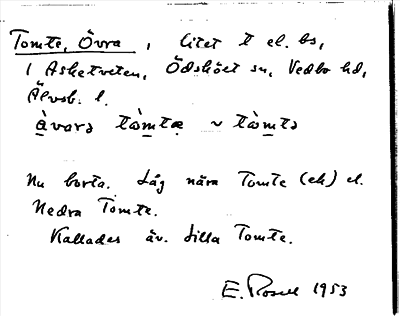 Tomte, Övra, litet t el. bs,
i Asketveten, Ödsköet sn, Vedbo hd,
Älvsb. l.
àvarə tòmtæ ~ tòmtə
Nu borta. Låg nära Tomte (ek) el.
Nedra Tomte.
Kallades äv. Lilla Tomte.
E. Rosell 1953